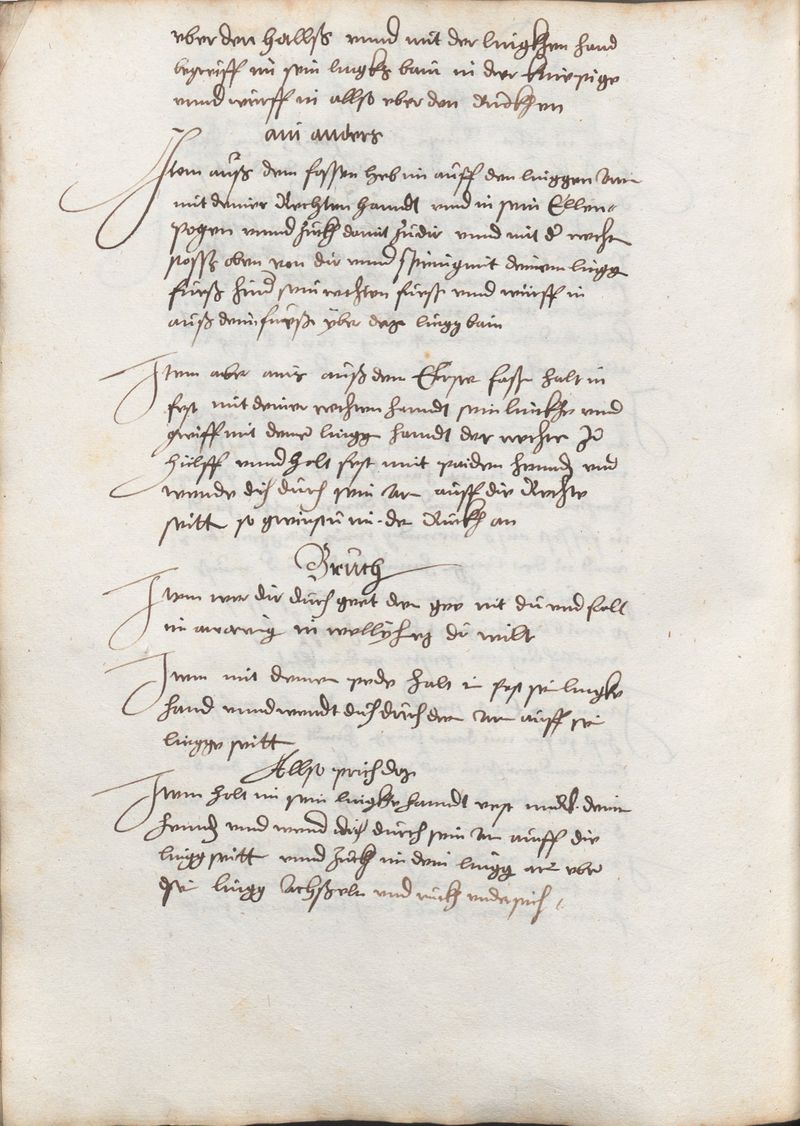 vber den hallß vnnd mit der lingkhen hand
begreiff im sein lingks bain in der kniepige
vnnd würff in allso vber den Ruckhen
ain anders
Item auß dem fassen heb im auff den linggen Arm
mit deiner Rechten hanndt vnd in sein Ellen„
pogen vnnd züch damit zudir vnnd mit der recht
stosß oben von dir vnnd spring mit deinem lingg
fueß hind sein rechten fuess vnd würff in
auß dem fueß vber daz lingg bain
Item aber ains auß dem Erste fasse halt in
fest mit deiner rechten hanndt sein lincke vnd
greiff mit deiner lingg hanndt der rechte zu
hilff vnnd halt fest mit paiden hennd vnd
wende dich durch sein Arm auff die Rechte
seitt so gwinstu im den Ruckh an
Bruch
Item wer dir durch geet dem gee nit du vnd felt
im in wellichez du wilt
Item mit deiner halt im fest sein lingke
hand vnnd wendt dich durch den Arm auff sein
lingge seitt
Allso prich daz
Item halt im sein lingke hanndt vest mit deine
hennd vnd wend dich durch sein Arm auff die
lingg seitt vnnd zuck im den lingg arm vber
dein lingg Achßeln vnd ruck vndersich